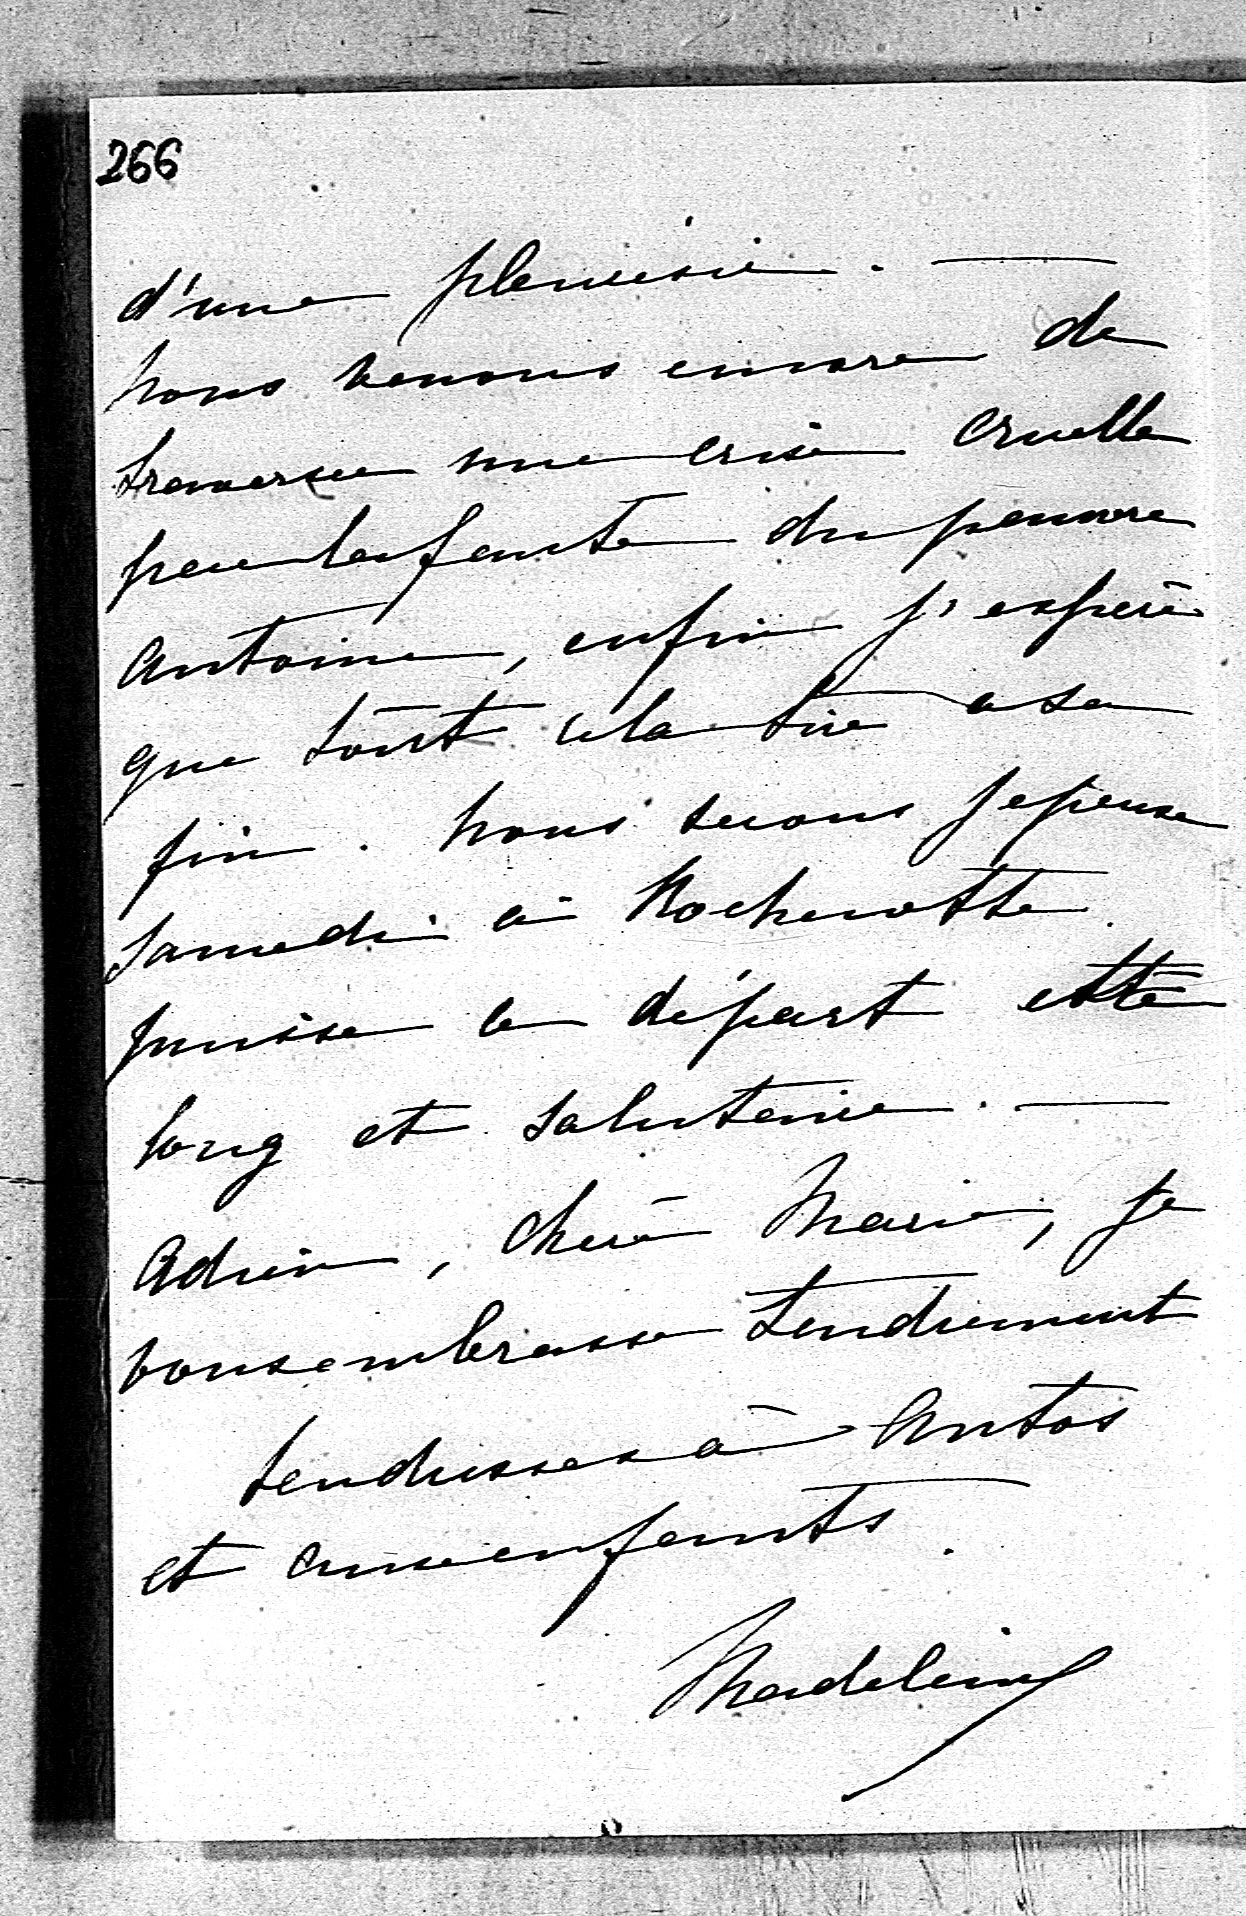 266
d'une pleuresie. —
Nous venons encore de
traverser une crise cruelle
par la faute du pauvre
Antoine, enfin j'espère
que tout cela tire a sa
fin. Nous serons je pense
samedi à Rochecotte.
Puisse le départ être
long et salutaire. —
Adieu, chère Marie, je
vous embrasse tendrement
tendresses à Antos
et aux enfants.
Madeleine